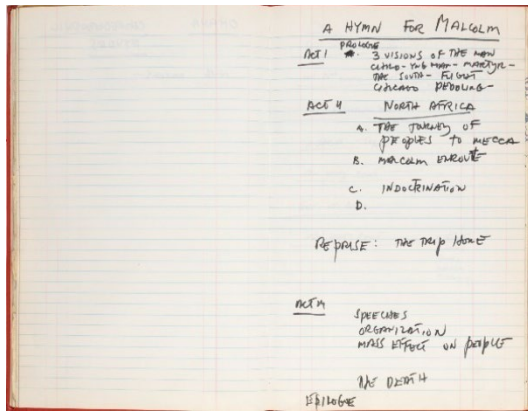 A HYMN FOR MALCOLM
PROLOGUE
ACT I 3 VISIONS OF THE MAN
CHILD - YNG MAN - MARTYR -
THE SOUTH - FLIGHT
CHICAGO PEDDLING -
ACT II NORTH AFRICA
A. THE JOURNEY OF
PEOPLES TO MECCA
B. MALCOLM ENROUTE
C. INDOCTRINATION
D.
REPRISE: THE TRIP HOME
ACT III
SPEECHES
ORGANIZATION
MASS EFFECT ON PEOPLE
THE DEATH
EPILOGUE